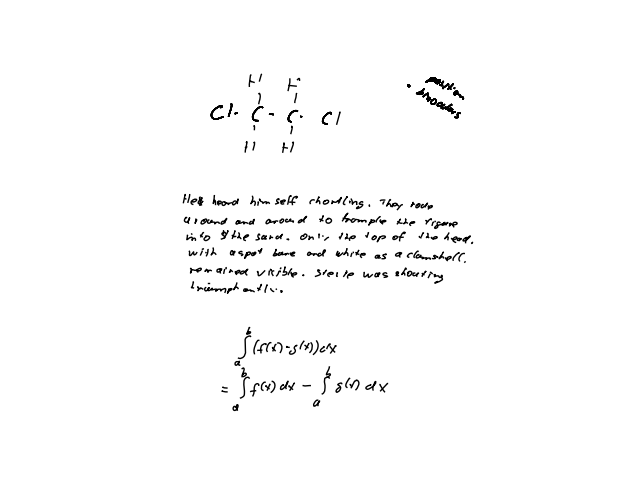 H H
Cl - C - C - Cl
H H
position
binoculars
He heard himself chortling. They rode
around and around to trample the figure
into the sand. Only the top of the head,
with a spot bare and white as a clamshell,
remained visible. Steele was shouting
triumphantly.
∫_a^b (f(x) - g(x)) dx
= ∫_a^b f(x) dx - ∫_a^b g(x) dx